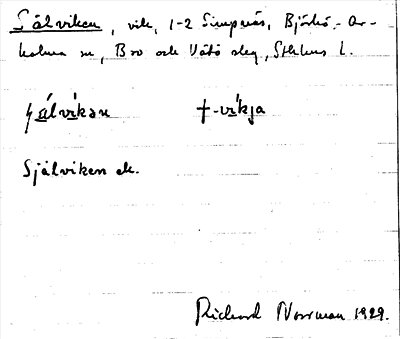 Sälviken, vik, 1-2 Simpnäs, Björkö-Ar-
holma sn, Bro och Vätö skg, Sthlms l.
sälvikan †-vikja
Själviken ek.
Richard Norrman 1929.